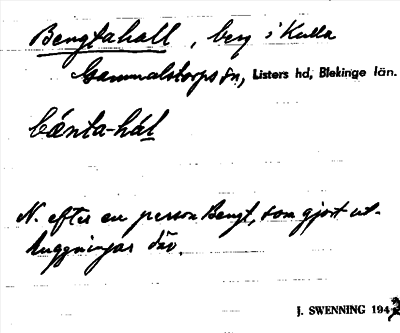 Bengtahall, berg i Kulla
Gammalstorps sn, Listers hd, Blekinge län.
bænta-hál
N. efter en person Bengt, som gjort ut-
huggningar där.
J. SWENNING 194